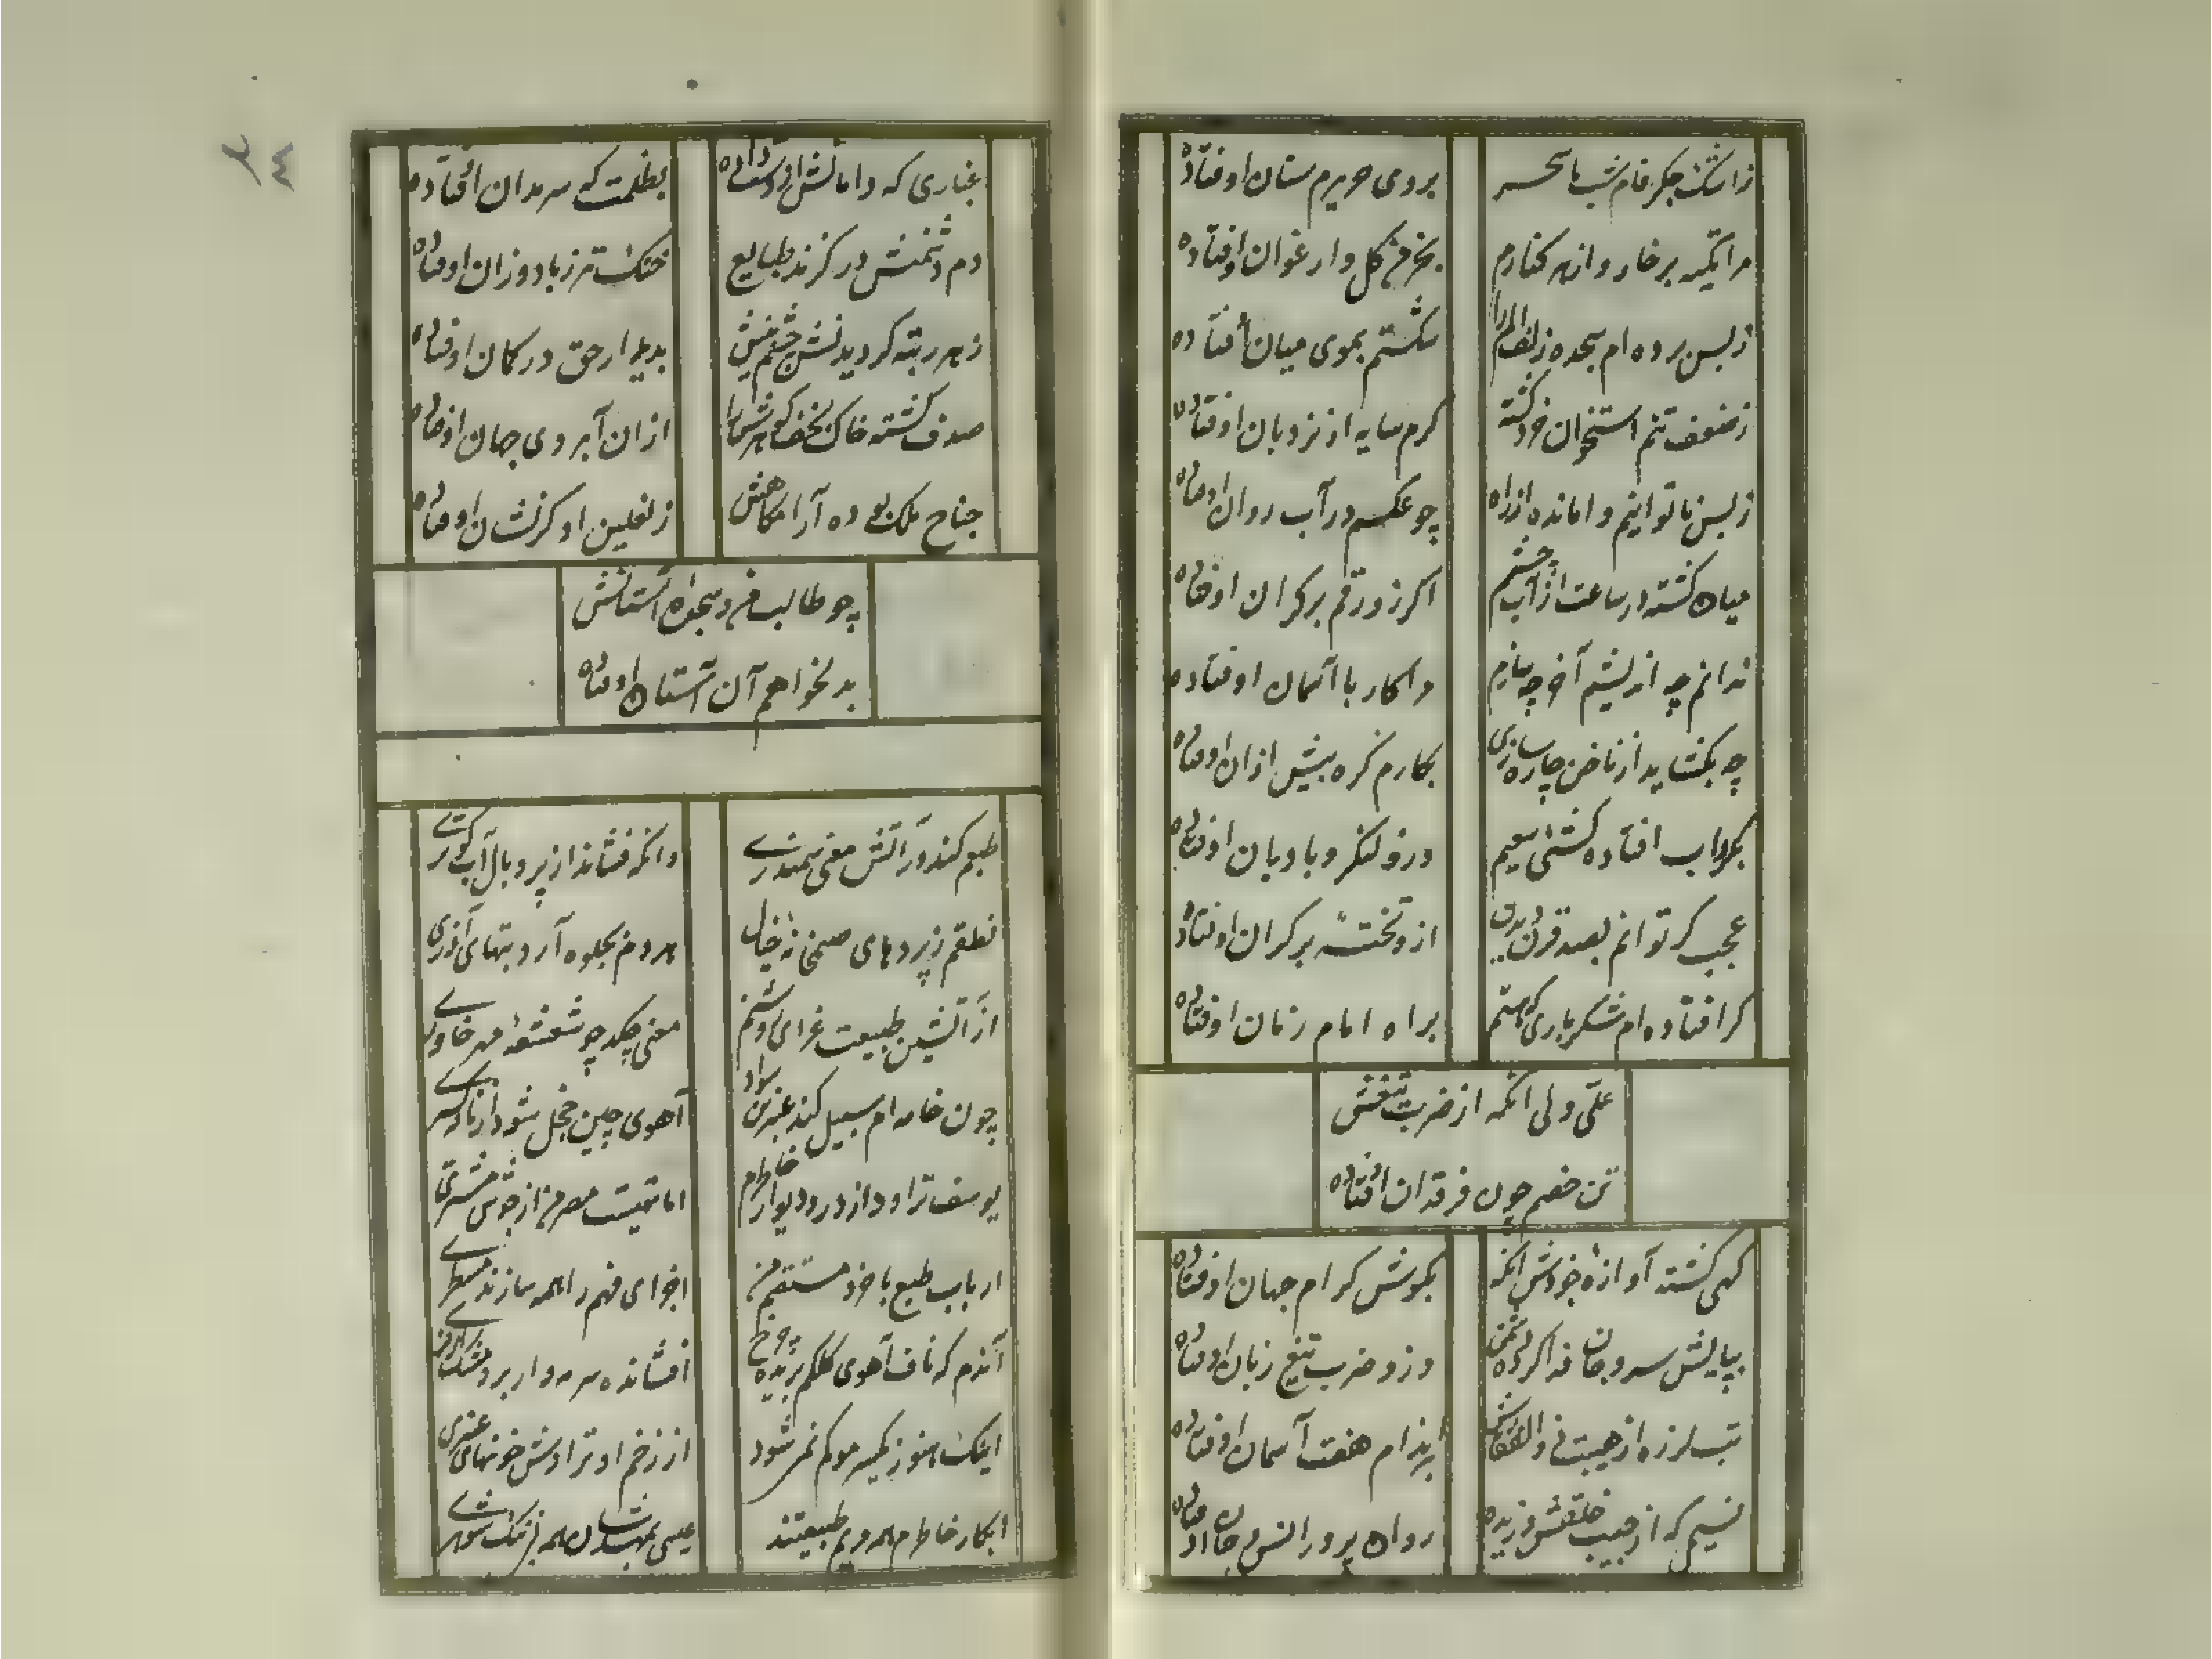 زاشک جگر فام شب تا سحر
بروی حریرم سنان اوفتاده
مرا تکیه بر خار و از هر کنارم
بخرمن گل و ارغوان اوفتاده
ز بس برده ام سجده زلف
شکستم بموی میان افتاده
ز ضعف تنم استخوان خرد گشته
گرم سایه از نردبان اوفتاده
ز بس ناتوانیم وامانده از راه
چو عکسم در آب روان اوفتاده
میان گشته در ساعت از آب چشمم
اگر زورقم بر کران اوفتاده
ندانم چه اندیشم آخر چه سازم
مرا کار با آسمان اوفتاده
چه بگشاید از ناخن چاره سازی
بکارم گره بیش از آن اوفتاده
بگرداب افتاده کشتی
درو لنگر و بادبان اوفتاده
عجب گر توانم بصد قرن دیدن
ازو تخته بر کران اوفتاده
گر افتاده ام شکر باری که هستم
براه امام زمان اوفتاده
علی ولی آنکه از ضربت تیغش
تن خصم چون فرقدان افتاده
کهی گشته آوازه جودش آنکه
بگوش کرام جهان اوفتاده
بپایش سر و جان فدا کرده دشمن
وزو ضرب تیغ زبان اوفتاده
تب لرزه از هیبت ذوالفقارش
بر اندام هفت آسمان اوفتاده
نسیمی که از جیب خلقش وزیده
روان پرور انس و جان اوفتاده
غباری که دامانش از دست داده
بظلمت که سرمدان افتاده
دم دشمنش در گزند طبایع
خنک تر ز باد وزان اوفتاده
ز هر رتبه گردیدنش چشم بینش
بدیدار حق در گمان اوفتاده
صدف گشته خاک نجف گوهرش را
از آن آبروی جهان اوفتاده
جناح ملک بوده آرامگاهش
ز نعلین او گر نشان اوفتاده
چو طالب فرو سجود آستانش
بدلخواهم آن آستان اوفتاده
طبعم کند در آتش معنی سمندری
وانگه فشاند از پر و بال آب کوثری
نطقم ز پردهای صنمخانه خیال
هر دم بجلوه آرد بتهای آذری
از آتشین طبیعت غرای روشنم
معنی چکد چو شعشعه مهر خاوری
چون خامه ام سبیل کند عنبرین سواد
آهوی چین خجل شود از نافه گستری
یوسف تراود از در و دیوار خاطرم
اما تهیست مصر من از جوش مشتری
ارباب طبع با خرد مستقیم من
اجزای فهم را همه سازند مسطری
آندم که ناف آهوی کلکم بریده چرخ
افشانده سرمه وار برو مشک اذفری
اینک هنوز زکسیه مویم نمی شود
از زخم او تراوش خونهای عنبری
ابکار خاطرم همه مریم طبیعتند
عیسی بمهدشان همه از ننگ شوهری